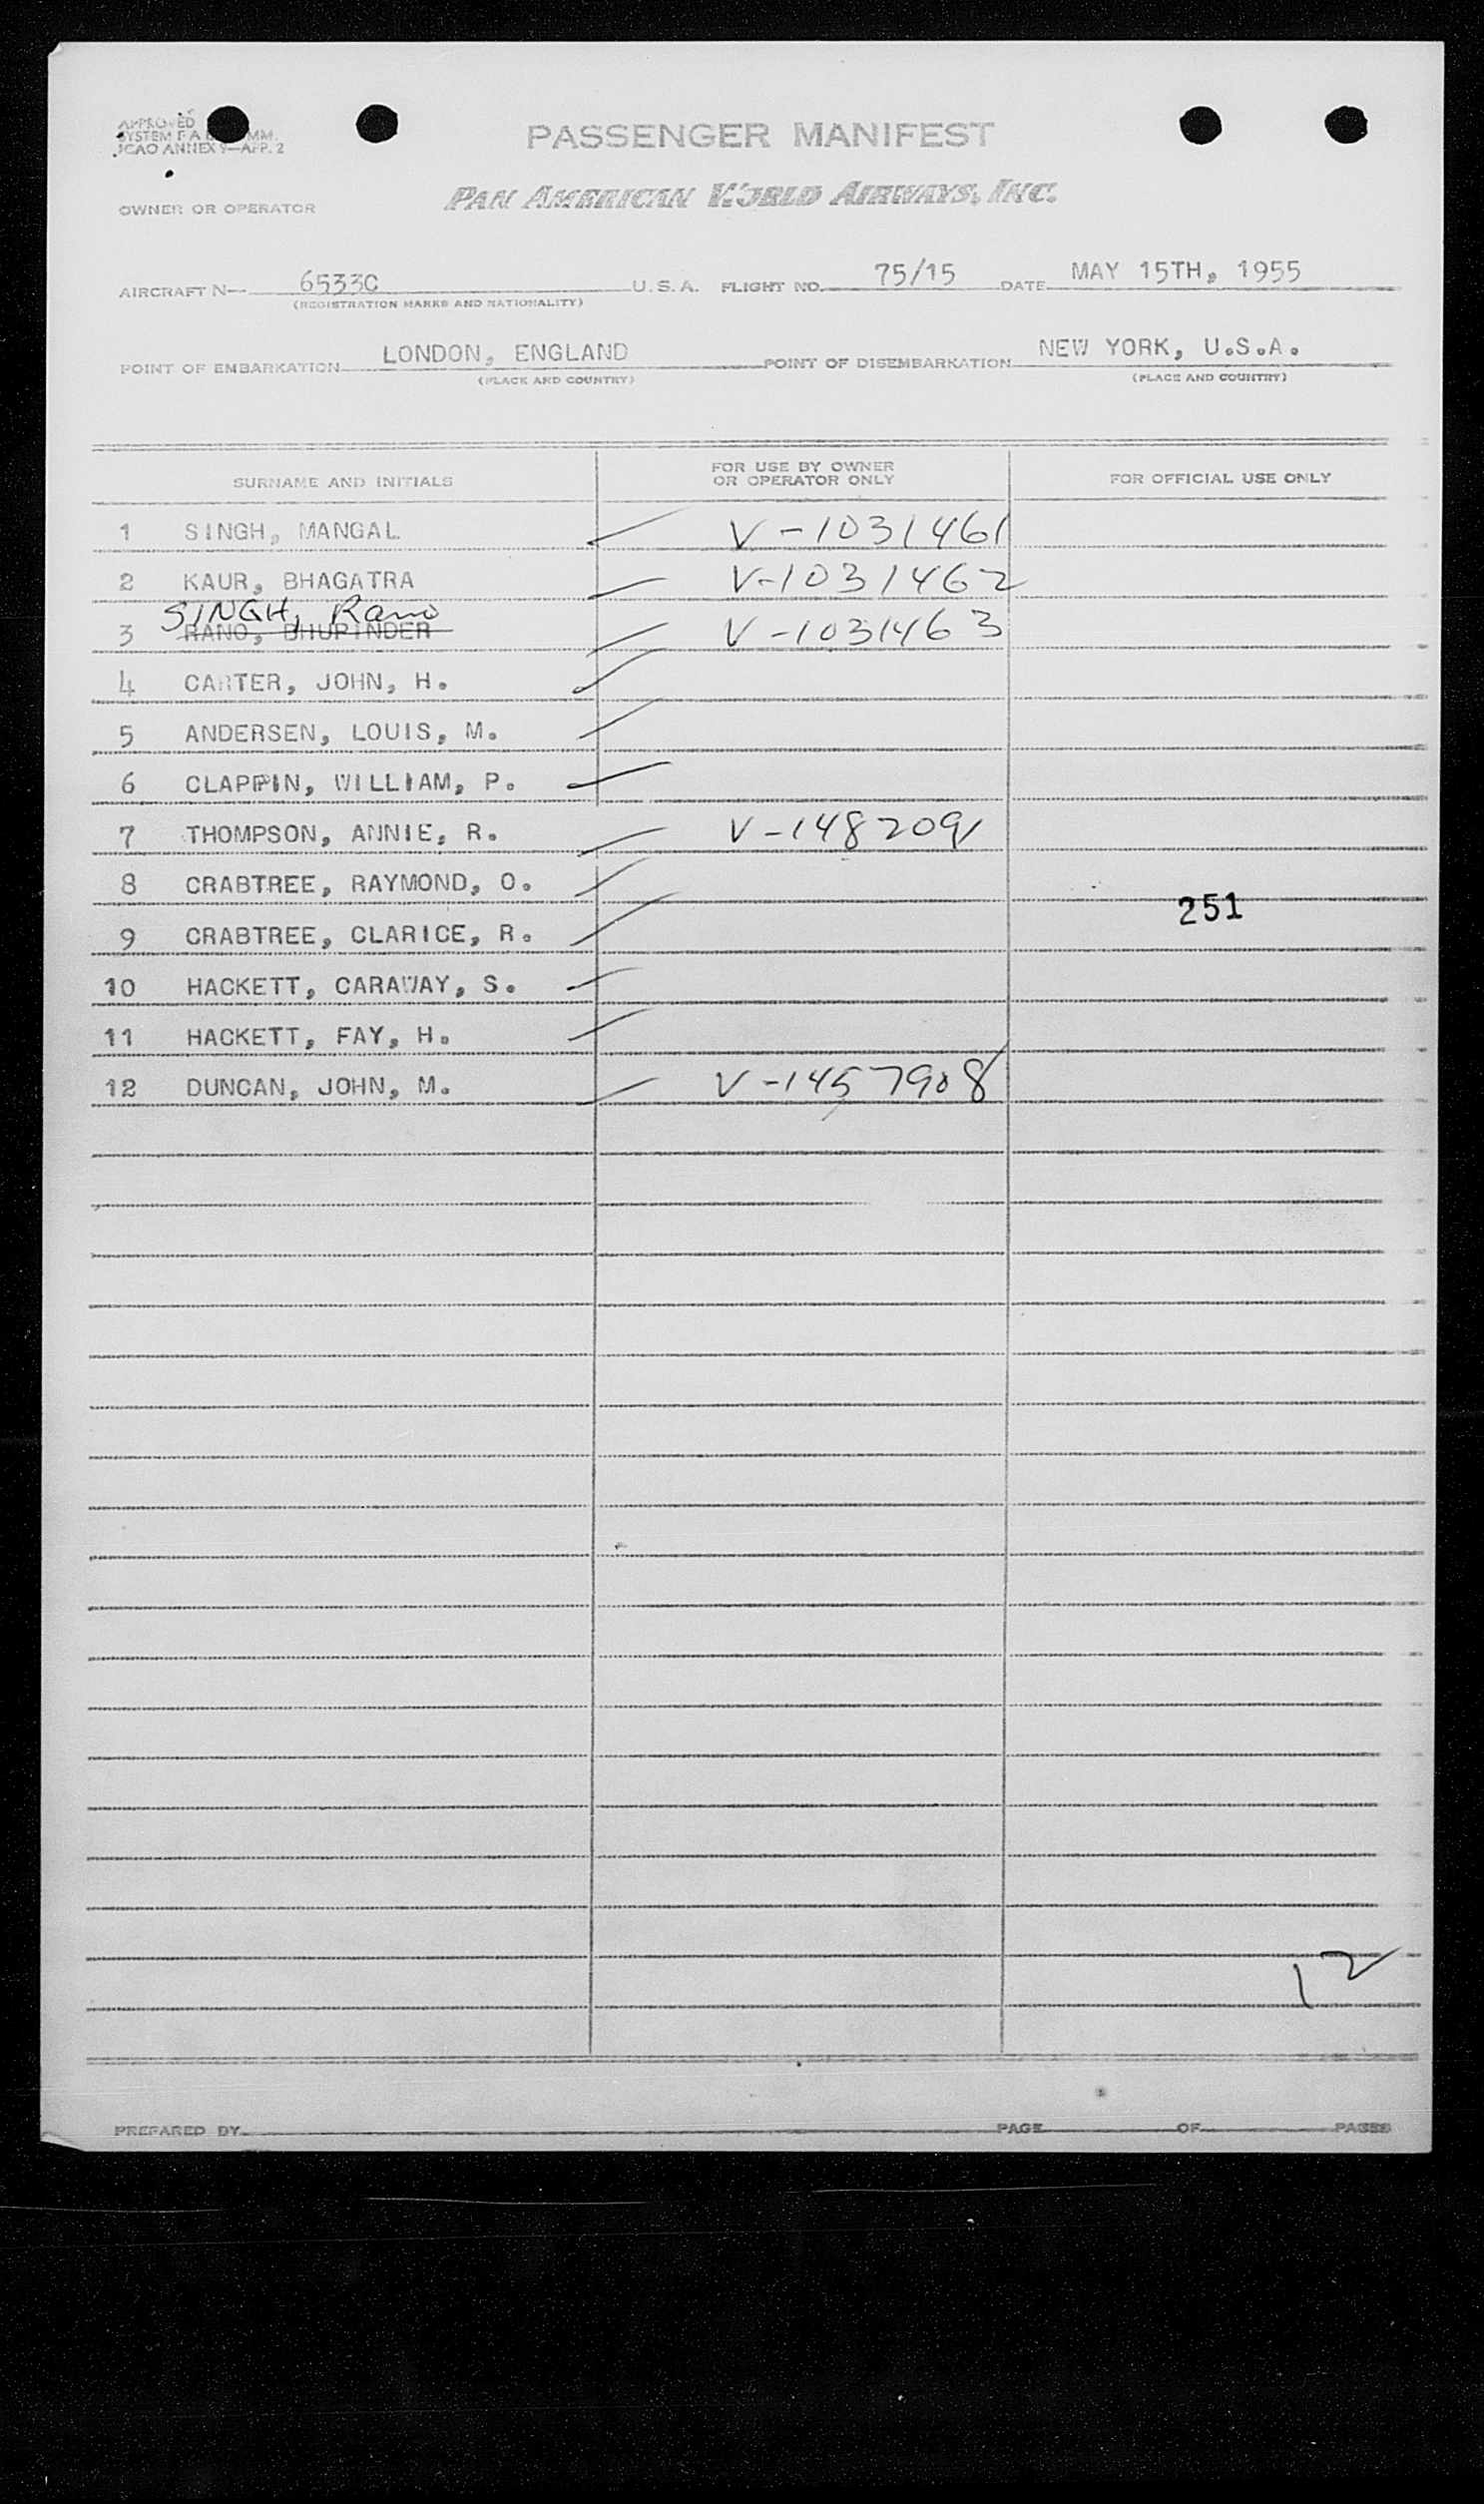 APPROVED
SYSTEM F A COMM.
ICAO ANNEX 9—APP. 2
PASSENGER MANIFEST
PAN AMERICAN WORLD AIRWAYS, INC.
OWNER OR OPERATOR
AIRCRAFT N— 6533C U.S.A. FLIGHT NO. 75/15 DATE MAY 15TH, 1955
(REGISTRATION MARKS AND NATIONALITY)
POINT OF EMBARKATION LONDON, ENGLAND POINT OF DISEMBARKATION NEW YORK, U.S.A.
(PLACE AND COUNTRY) (PLACE AND COUNTRY)
SURNAME AND INITIALS FOR USE BY OWNER OR OPERATOR ONLY FOR OFFICIAL USE ONLY
1 SINGH, MANGAL V-1031461
2 KAUR, BHAGATRA V-1031462
SINGH, Rano
3 RANO, BHUPINDER V-1031463
4 CARTER, JOHN, H.
5 ANDERSEN, LOUIS, M.
6 CLAPPIN, WILLIAM, P.
7 THOMPSON, ANNIE, R. V-148209
8 CRABTREE, RAYMOND, O.
251
9 CRABTREE, CLARICE, R.
10 HACKETT, CARAWAY, S.
11 HACKETT, FAY, H.
12 DUNCAN, JOHN, M. V-1457908
12
PREPARED BY PAGE OF PAGES